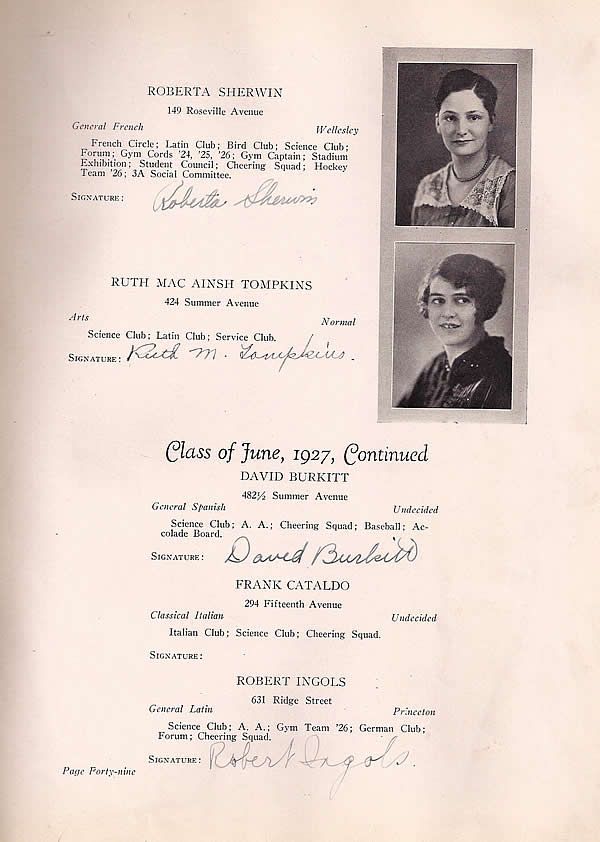 ROBERTA SHERWIN
149 Roseville Avenue
General French Wellesley
French Circle; Latin Club; Bird Club; Science Club;
Forum; Gym Cords '24, '25, '26; Gym Captain; Stadium
Exhibition; Student Council; Cheering Squad; Hockey
Team '26; 3A Social Committee.
SIGNATURE: Roberta Sherwin
RUTH MAC AINSH TOMPKINS
424 Summer Avenue
Arts Normal
Science Club; Latin Club; Service Club.
SIGNATURE: Ruth M. Tompkins.
Class of June, 1927, Continued
DAVID BURKITT
482½ Summer Avenue
General Spanish Undecided
Science Club; A. A.; Cheering Squad; Baseball; Ac-
colade Board.
SIGNATURE: David Burkitt
FRANK CATALDO
294 Fifteenth Avenue
Classical Italian Undecided
Italian Club; Science Club; Cheering Squad.
SIGNATURE:
ROBERT INGOLS
631 Ridge Street
General Latin Princeton
Science Club; A. A.; Gym Team '26; German Club;
Forum; Cheering Squad.
SIGNATURE: Robert Ingols.
Page Forty-nine